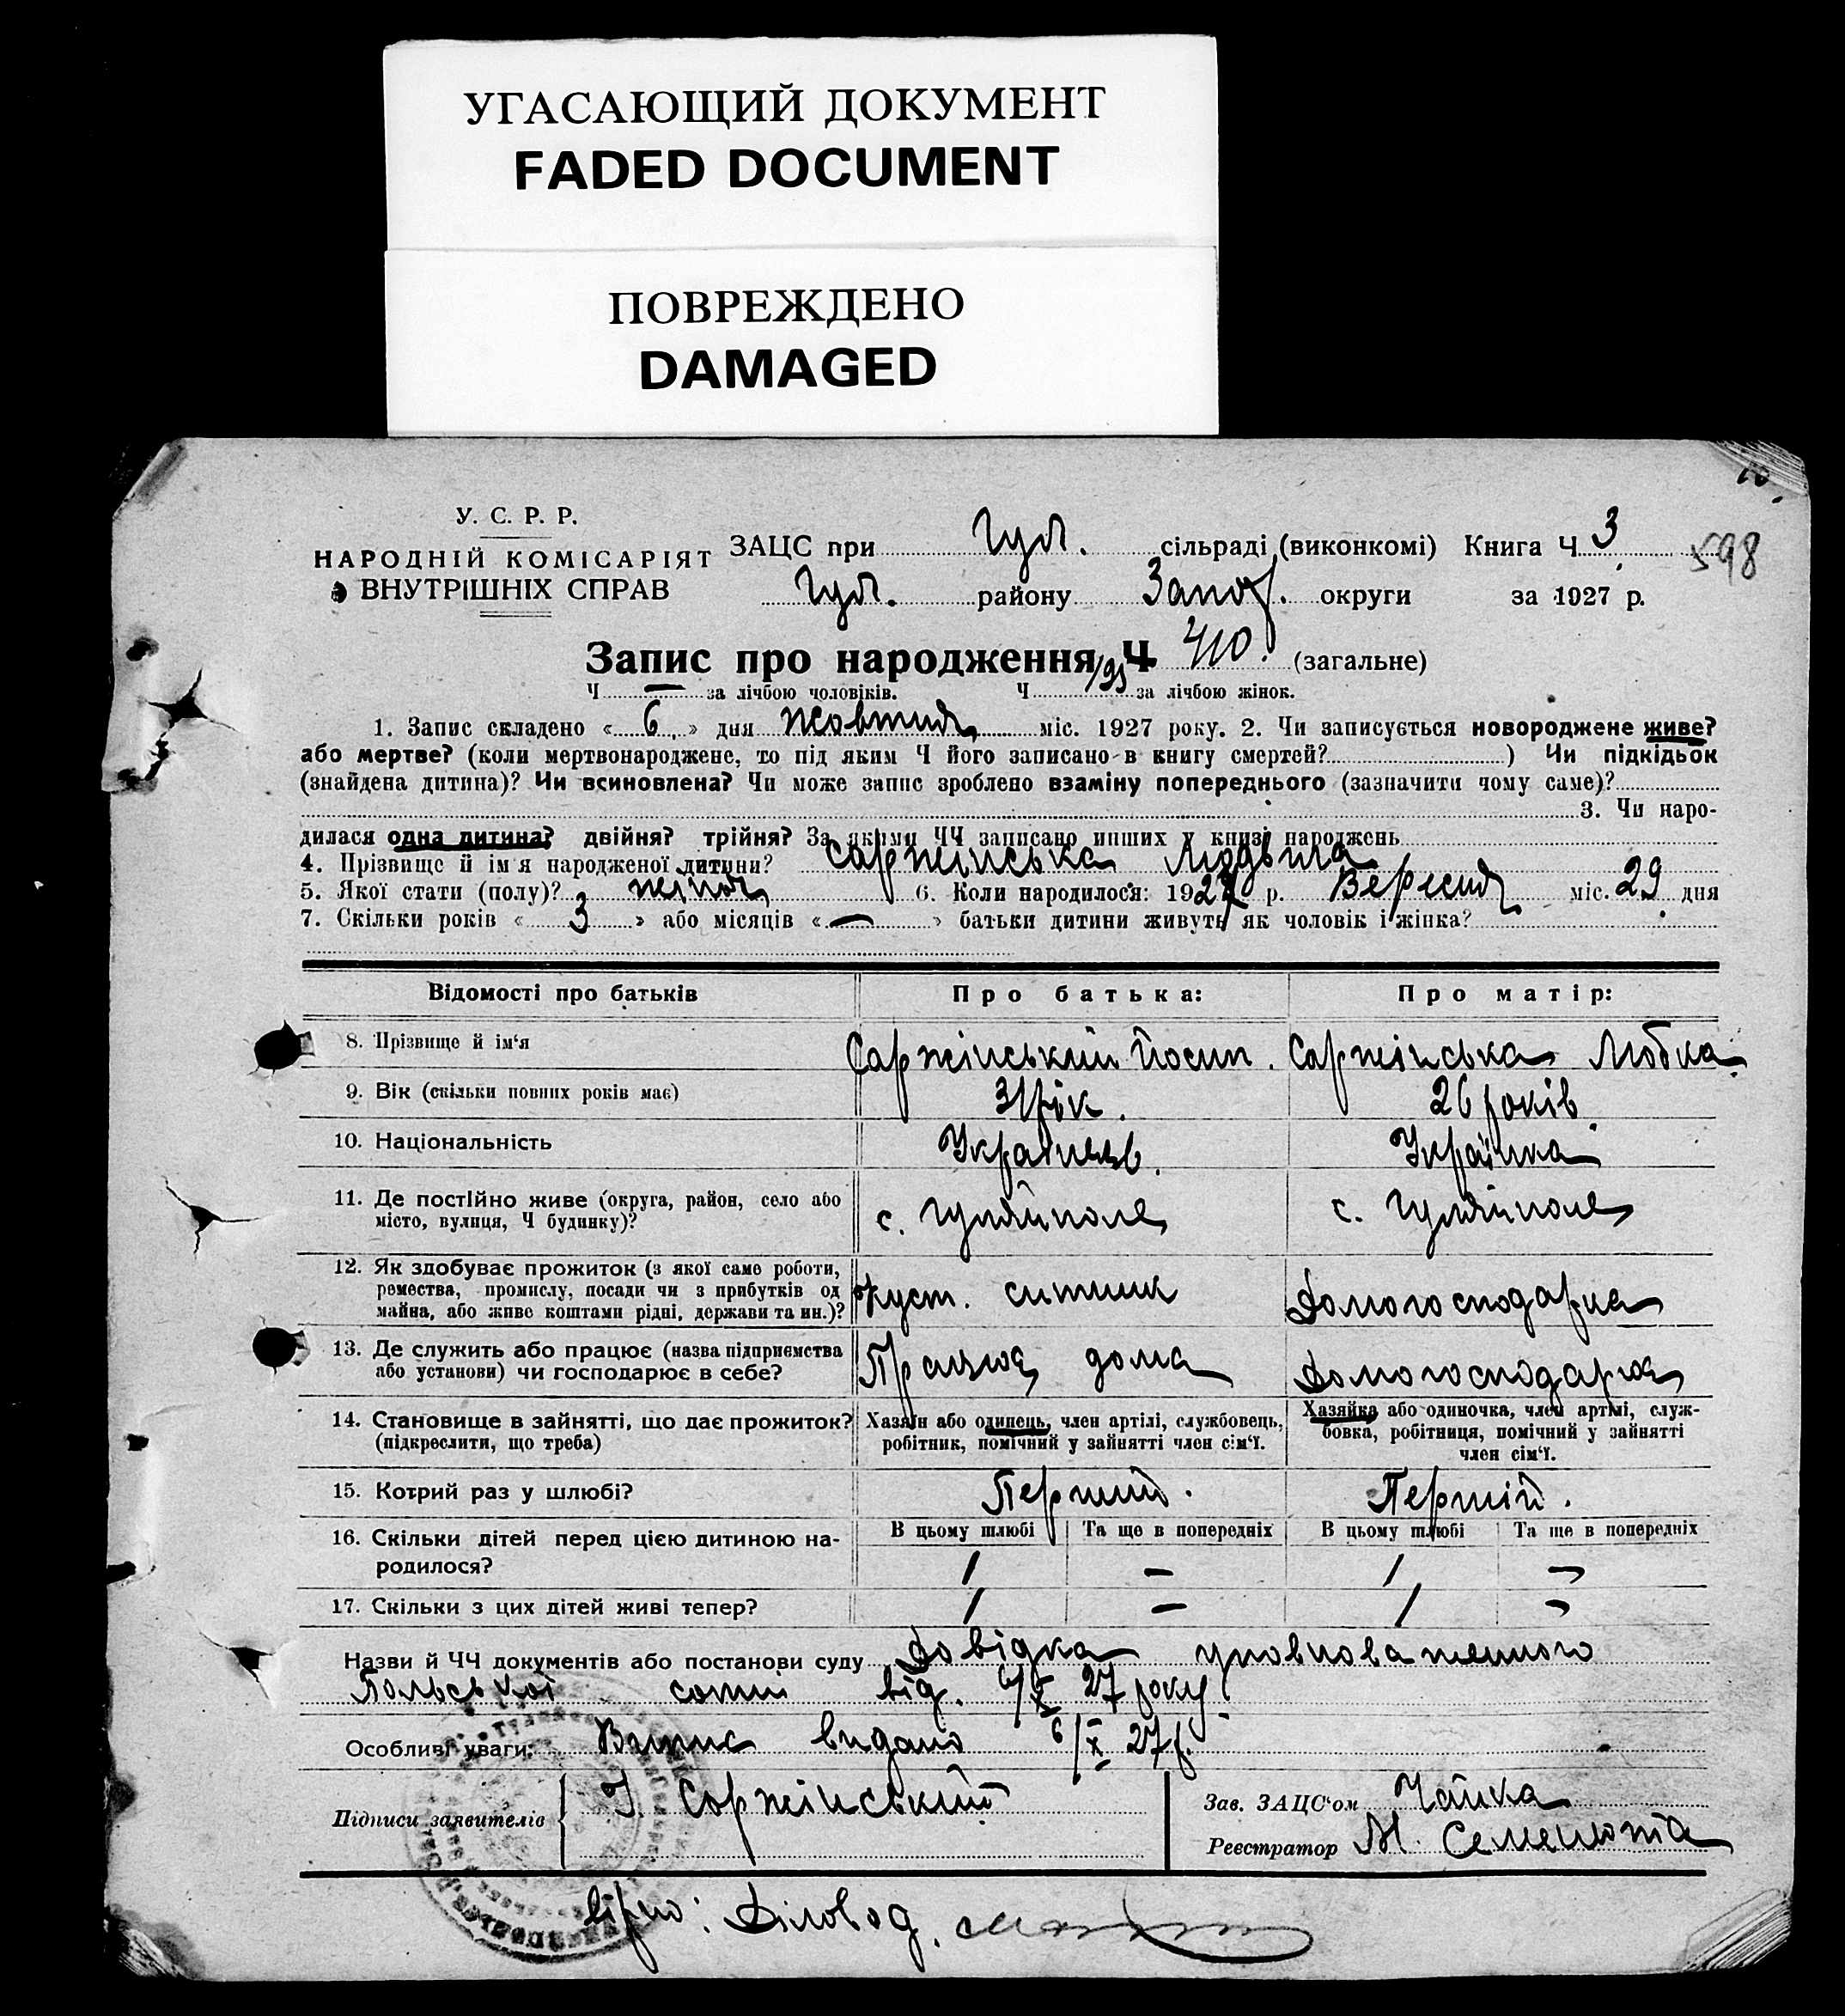 УГАСАЮЩИЙ ДОКУМЕНТ
FADED DOCUMENT
ПОВРЕЖДЕНО
DAMAGED
У. С. Р. Р.
НАРОДНІЙ КОМІСАРІЯТ
ВНУТРІШНІХ СПРАВ
ЗАЦС при Гул. сільраді (виконкомі) Книга Ч 3
598
Гул. району Запор. округи за 1927 р.
Запис про народження Ч 410. (загальне)
Ч — за лічбою чоловіків. Ч 195 за лічбою жінок.
1. Запис складено « 6 » дня жовтня міс. 1927 року. 2. Чи записується новороджене живе?
або мертве? (коли мертвонароджене, то під яким Ч його записано в книгу смертей? ) Чи підкідьок
(знайдена дитина)? Чи всиновлена? Чи може запис зроблено взаміну попереднього (зазначити чому саме)?
3. Чи наро-
дилася одна дитина? двійня? трійня? За якими ЧЧ записано инших у книзі народжень
4. Прізвище й ім'я народженої дитини? Саржінська Людвіга
5. Якої стати (полу)? жіноч 6. Коли народилося: 1927 р. Вересня міс. 29 дня
7. Скільки років « 3 » або місяців « — » батьки дитини живуть як чоловік і жінка?
Відомості про батьків Про батька: Про матір:
8. Прізвище й ім'я Саржінський Йосип. Саржінська Любка
9. Вік (скільки повних років має) 31 рік. 26 років
10. Національність Українець. Українка
11. Де постійно живе (округа, район, село або
місто, вулиця, Ч будинку)? с. Гуляйполе с. Гуляйполе
12. Як здобуває прожиток (з якої саме роботи,
ремества, промислу, посади чи з прибутків од
майна, або живе коштами рідні, держави та ин.)? куст. ситник Домогосподарка
13. Де служить або працює (назва підприємства
або установи) чи господарює в себе? Працює дома Домогосподарює
14. Становище в зайнятті, що дає прожиток?
(підкреслити, що треба)
Хазяїн або одинець, член артілі, службовець,
робітник, помічний у зайнятті член сім'ї.
Хазяйка або одиночка, член артілі, служ-
бовка, робітниця, помічний у зайнятті
член сім'ї.
15. Котрий раз у шлюбі? Перший. Перший.
16. Скільки дітей перед цією дитиною на-
родилося?
В цьому шлюбі Та ще в попередніх В цьому шлюбі Та ще в попередніх
1 — 1 —
17. Скільки з цих дітей живі тепер? 1 — 1 —
Назви й ЧЧ документів або постанови суду Довідка уповноваженого
Польської сотні від. 6/X 27 року
Особливі уваги: Випис видано 6/X 27 р.
Підписи заявителів Й. Саржінський
Зав. ЗАЦС'ом Чайка
Реєстратор М. Семенюта
вірно: Діловод.